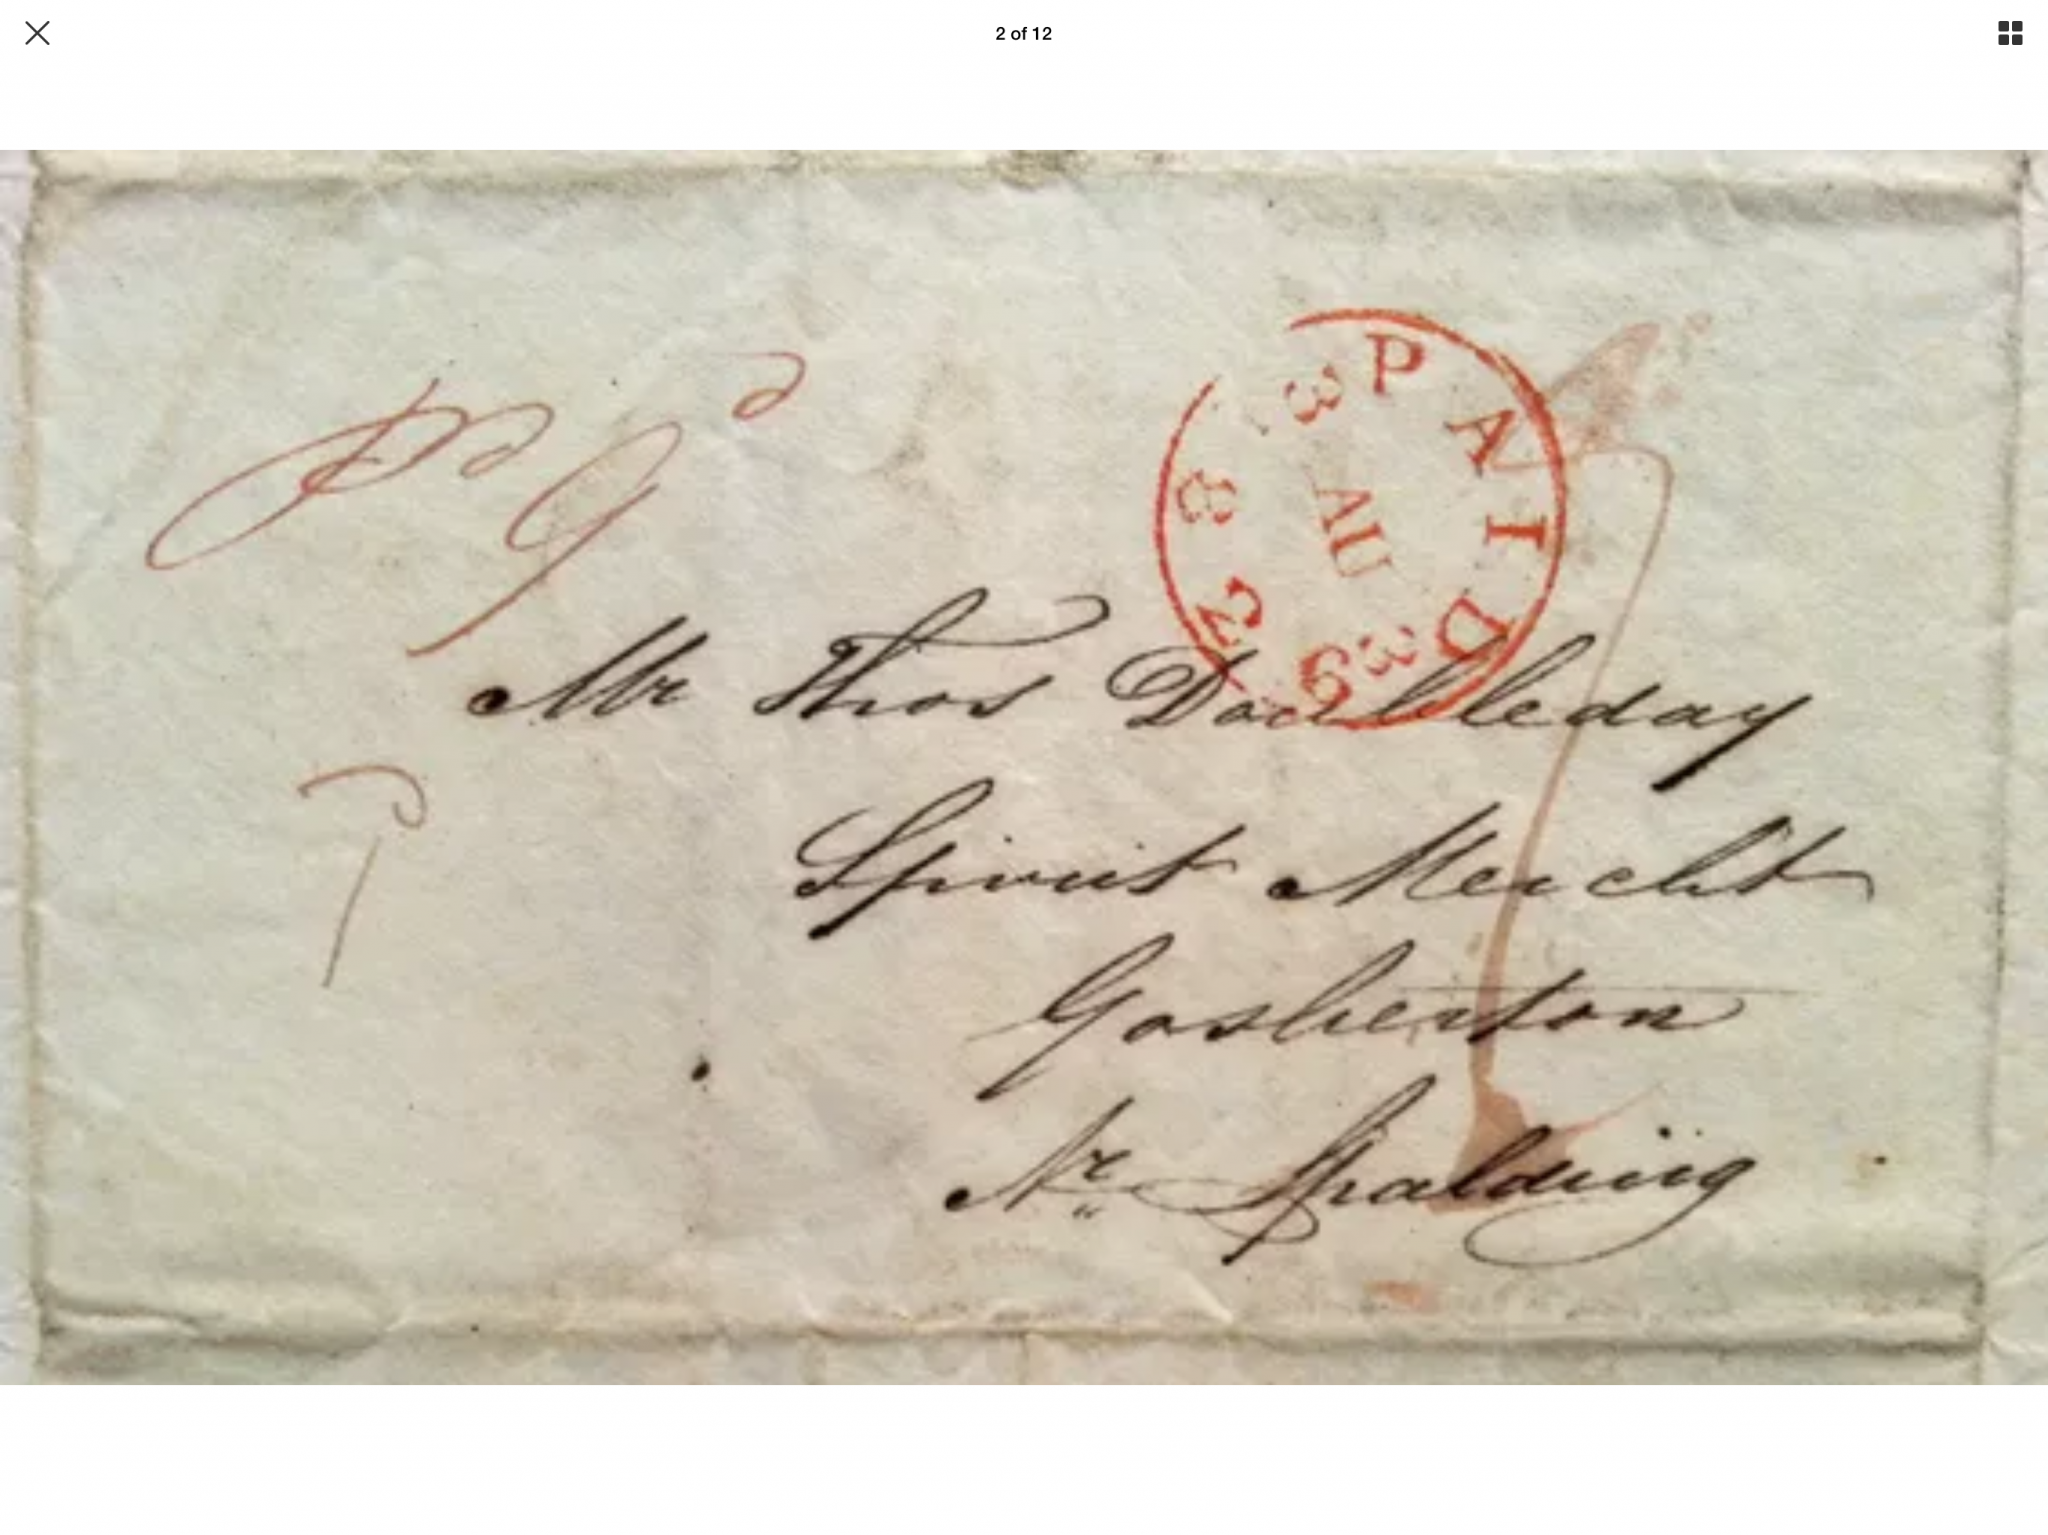 2 of 12
Pd 9d
PAID
3 AU 3
1839
Mr Thos Doubleday
Spirit Mercht
Gosberton
Nr Spalding